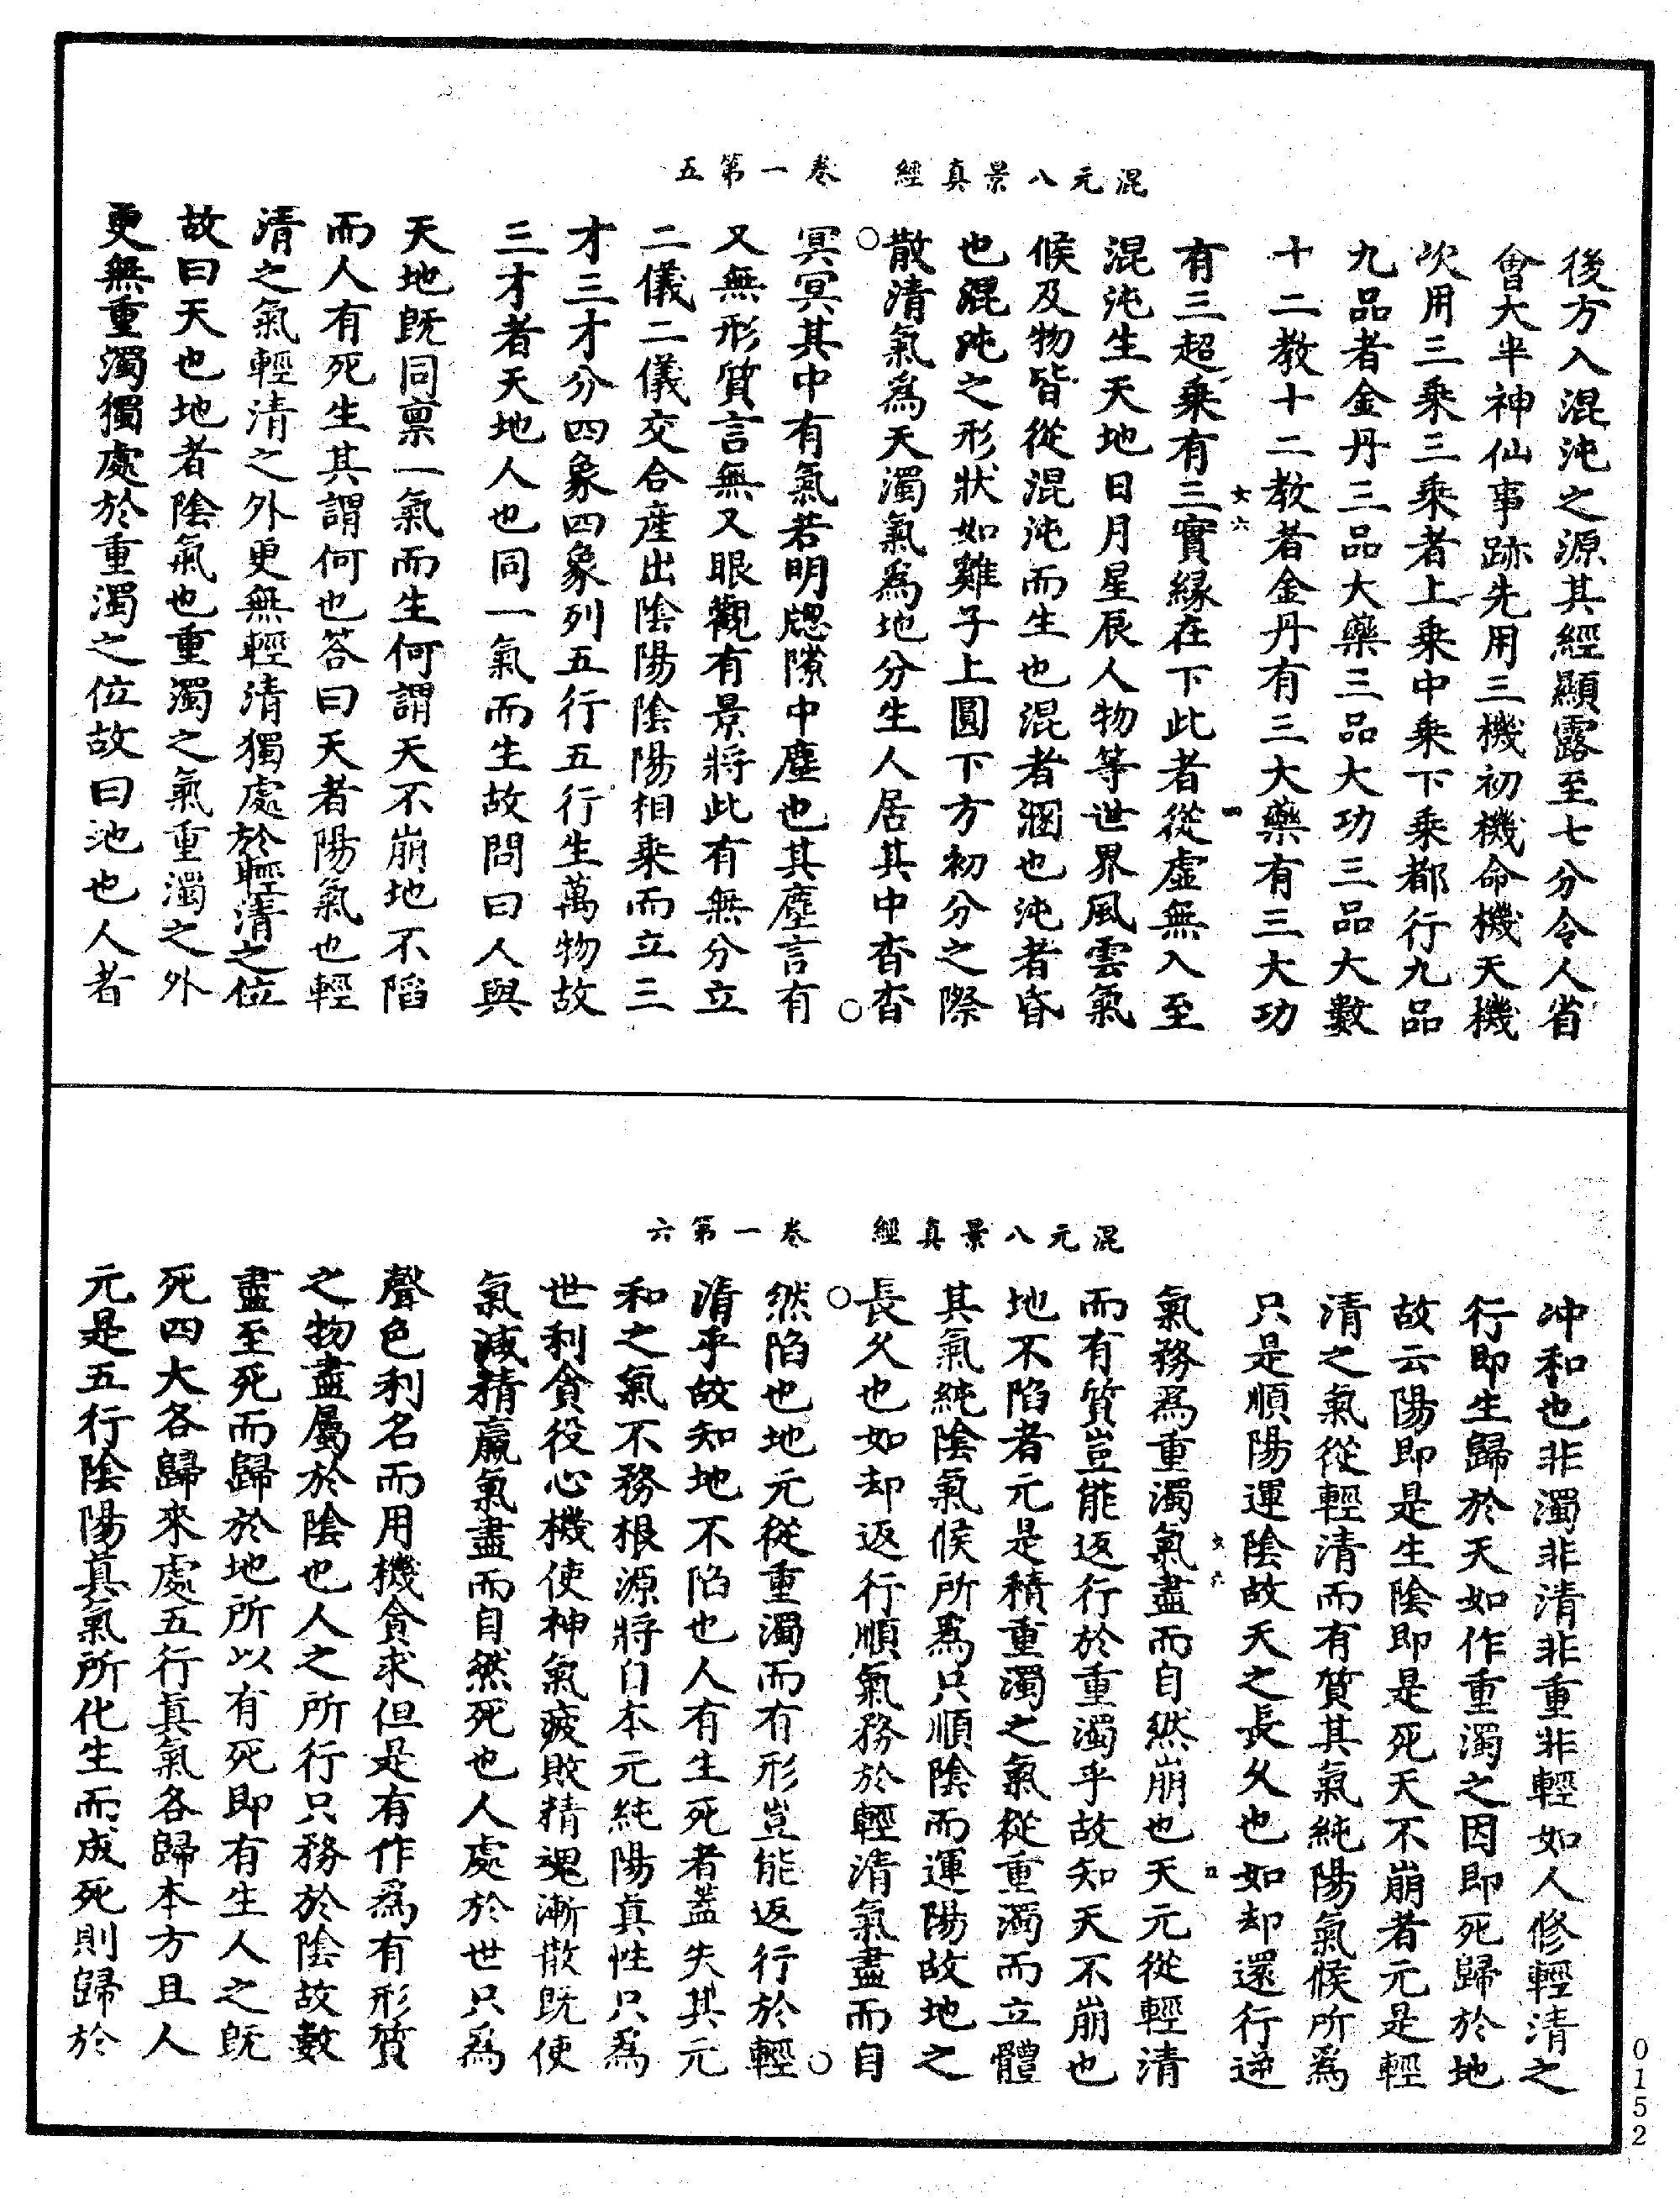 混元八景真經　卷一第五
後方入混沌之源其經顯露至七分令人省
會大半神仙事跡先用三機初機命機天機
次用三乘三乘者上乘中乘下乘都行九品
九品者金丹三品大藥三品大功三品大數
十二教十二教者金丹有三大藥有三大功
女六
一
有三超乘有三實緣在下此者從虛無入至
混沌生天地日月星辰人物等世界風雲氣
候及物皆從混沌而生也混者溷也沌者昏
也混沌之形狀如雞子上圓下方初分之際
散清氣為天濁氣為地分生人居其中杳杳
冥冥其中有氣若明牕隙中塵也其塵言有
又無形質言無又眼觀有景將此有無分立
二儀二儀交合產出陰陽陰陽相乘而立三
才三才分四象四象列五行五行生萬物故
三才者天地人也同一氣而生故問曰人與
天地既同禀一氣而生何謂天不崩地不陷
而人有死生其謂何也答曰天者陽氣也輕
清之氣輕清之外更無輕清獨處於輕清之位
故曰天也地者陰氣也重濁之氣重濁之外
更無重濁獨處於重濁之位故曰地也人者
混元八景真經　卷一第六
冲和也非濁非清非重非輕如人修輕清之
行即生歸於天如作重濁之因即死歸於地
故云陽即是生陰即是死天不崩者元是輕
清之氣從輕清而有質其氣純陽氣候所為
只是順陽運陰故天之長久也如却還行逆
女六
四
氣務為重濁氣盡而自然崩也天元從輕清
而有質豈能返行於重濁乎故知天不崩也
地不陷者元是積重濁之氣從重濁而立體
其氣純陰氣候所為只順陰而運陽故地之
長久也如却返行順氣務於輕清氣盡而自
然陷也地元從重濁而有形豈能返行於輕
清乎故知地不陷也人有生死者蓋失其元
和之氣不務根源將自本元純陽真性只為
世利貪役心機使神氣疲敗精魂漸散既使
氣減精羸氣盡而自然死也人處於世只為
聲色利名而用機貪求但是有作為有形質
之物盡屬於陰也人之所行只務於陰故數
盡至死而歸於地所以有死即有生人之既
死四大各歸來處五行真氣各歸本方且人
元是五行陰陽真氣所化生而成死則歸於
0152